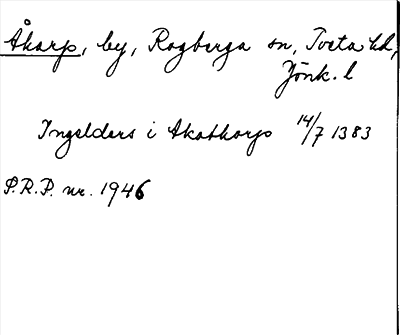 Åkarp, by, Rogberga sn, Tveta hd,
Jönk. l
Ingelders i Akathorp 14/7 1383
P.R.P. nr. 1946